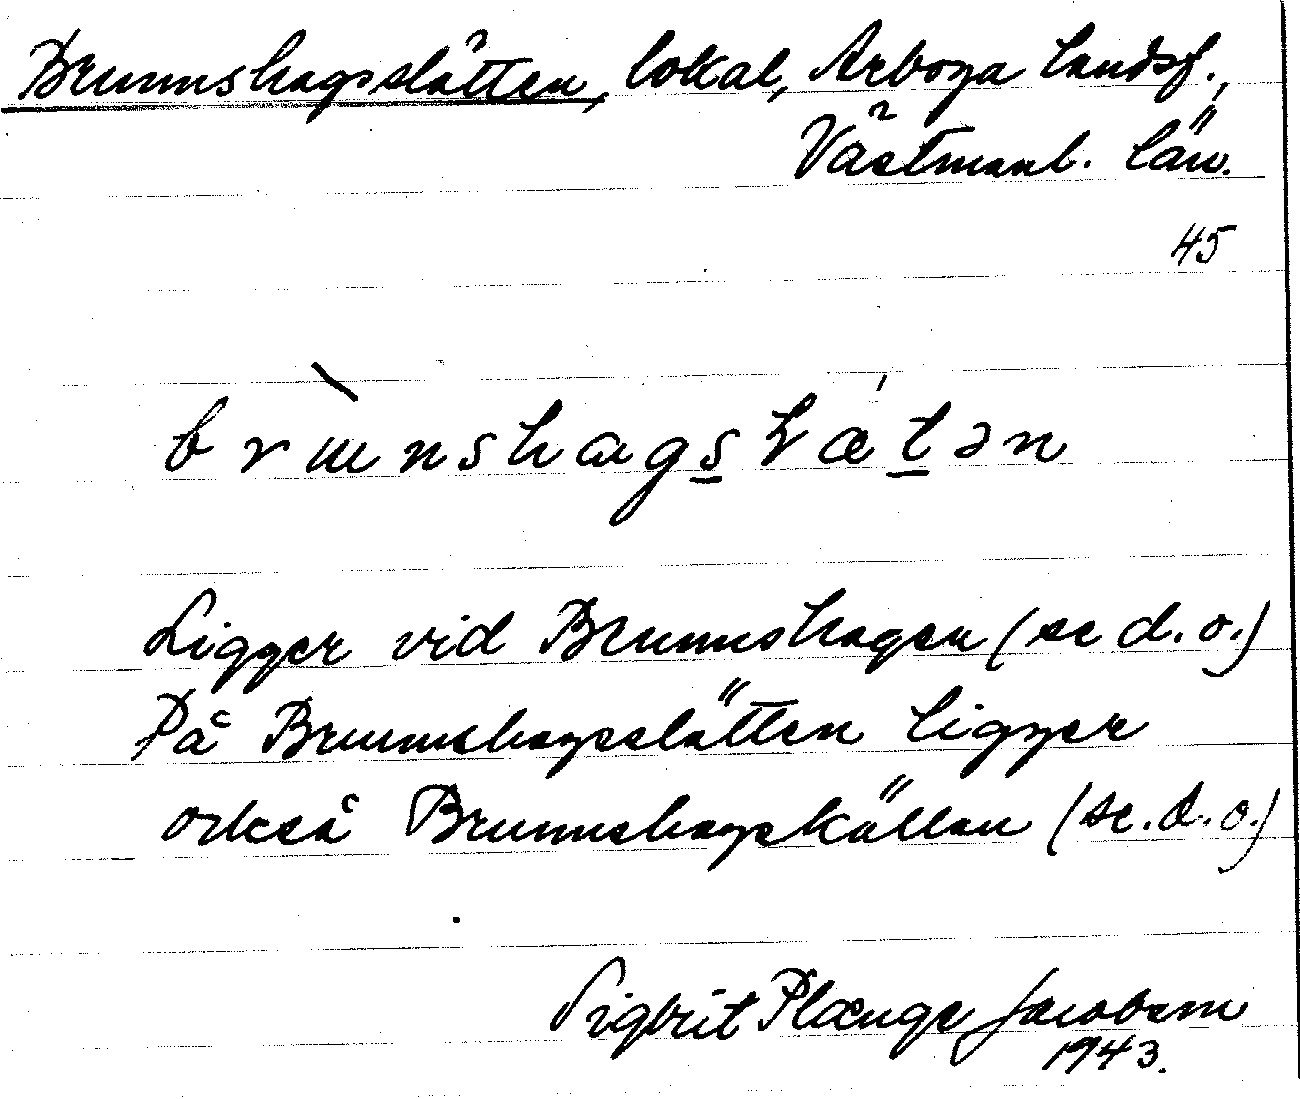 Brunnshagsslätten, lokal, Arboga landsf.,
Västmanl. län.
45
Ligger vid Brunnshagen (se d.o.)
På Brunnshagsslätten ligger
också Brunnshagskällan (se.d.o.)
Sigbrit Plænge Jacobson
1943.